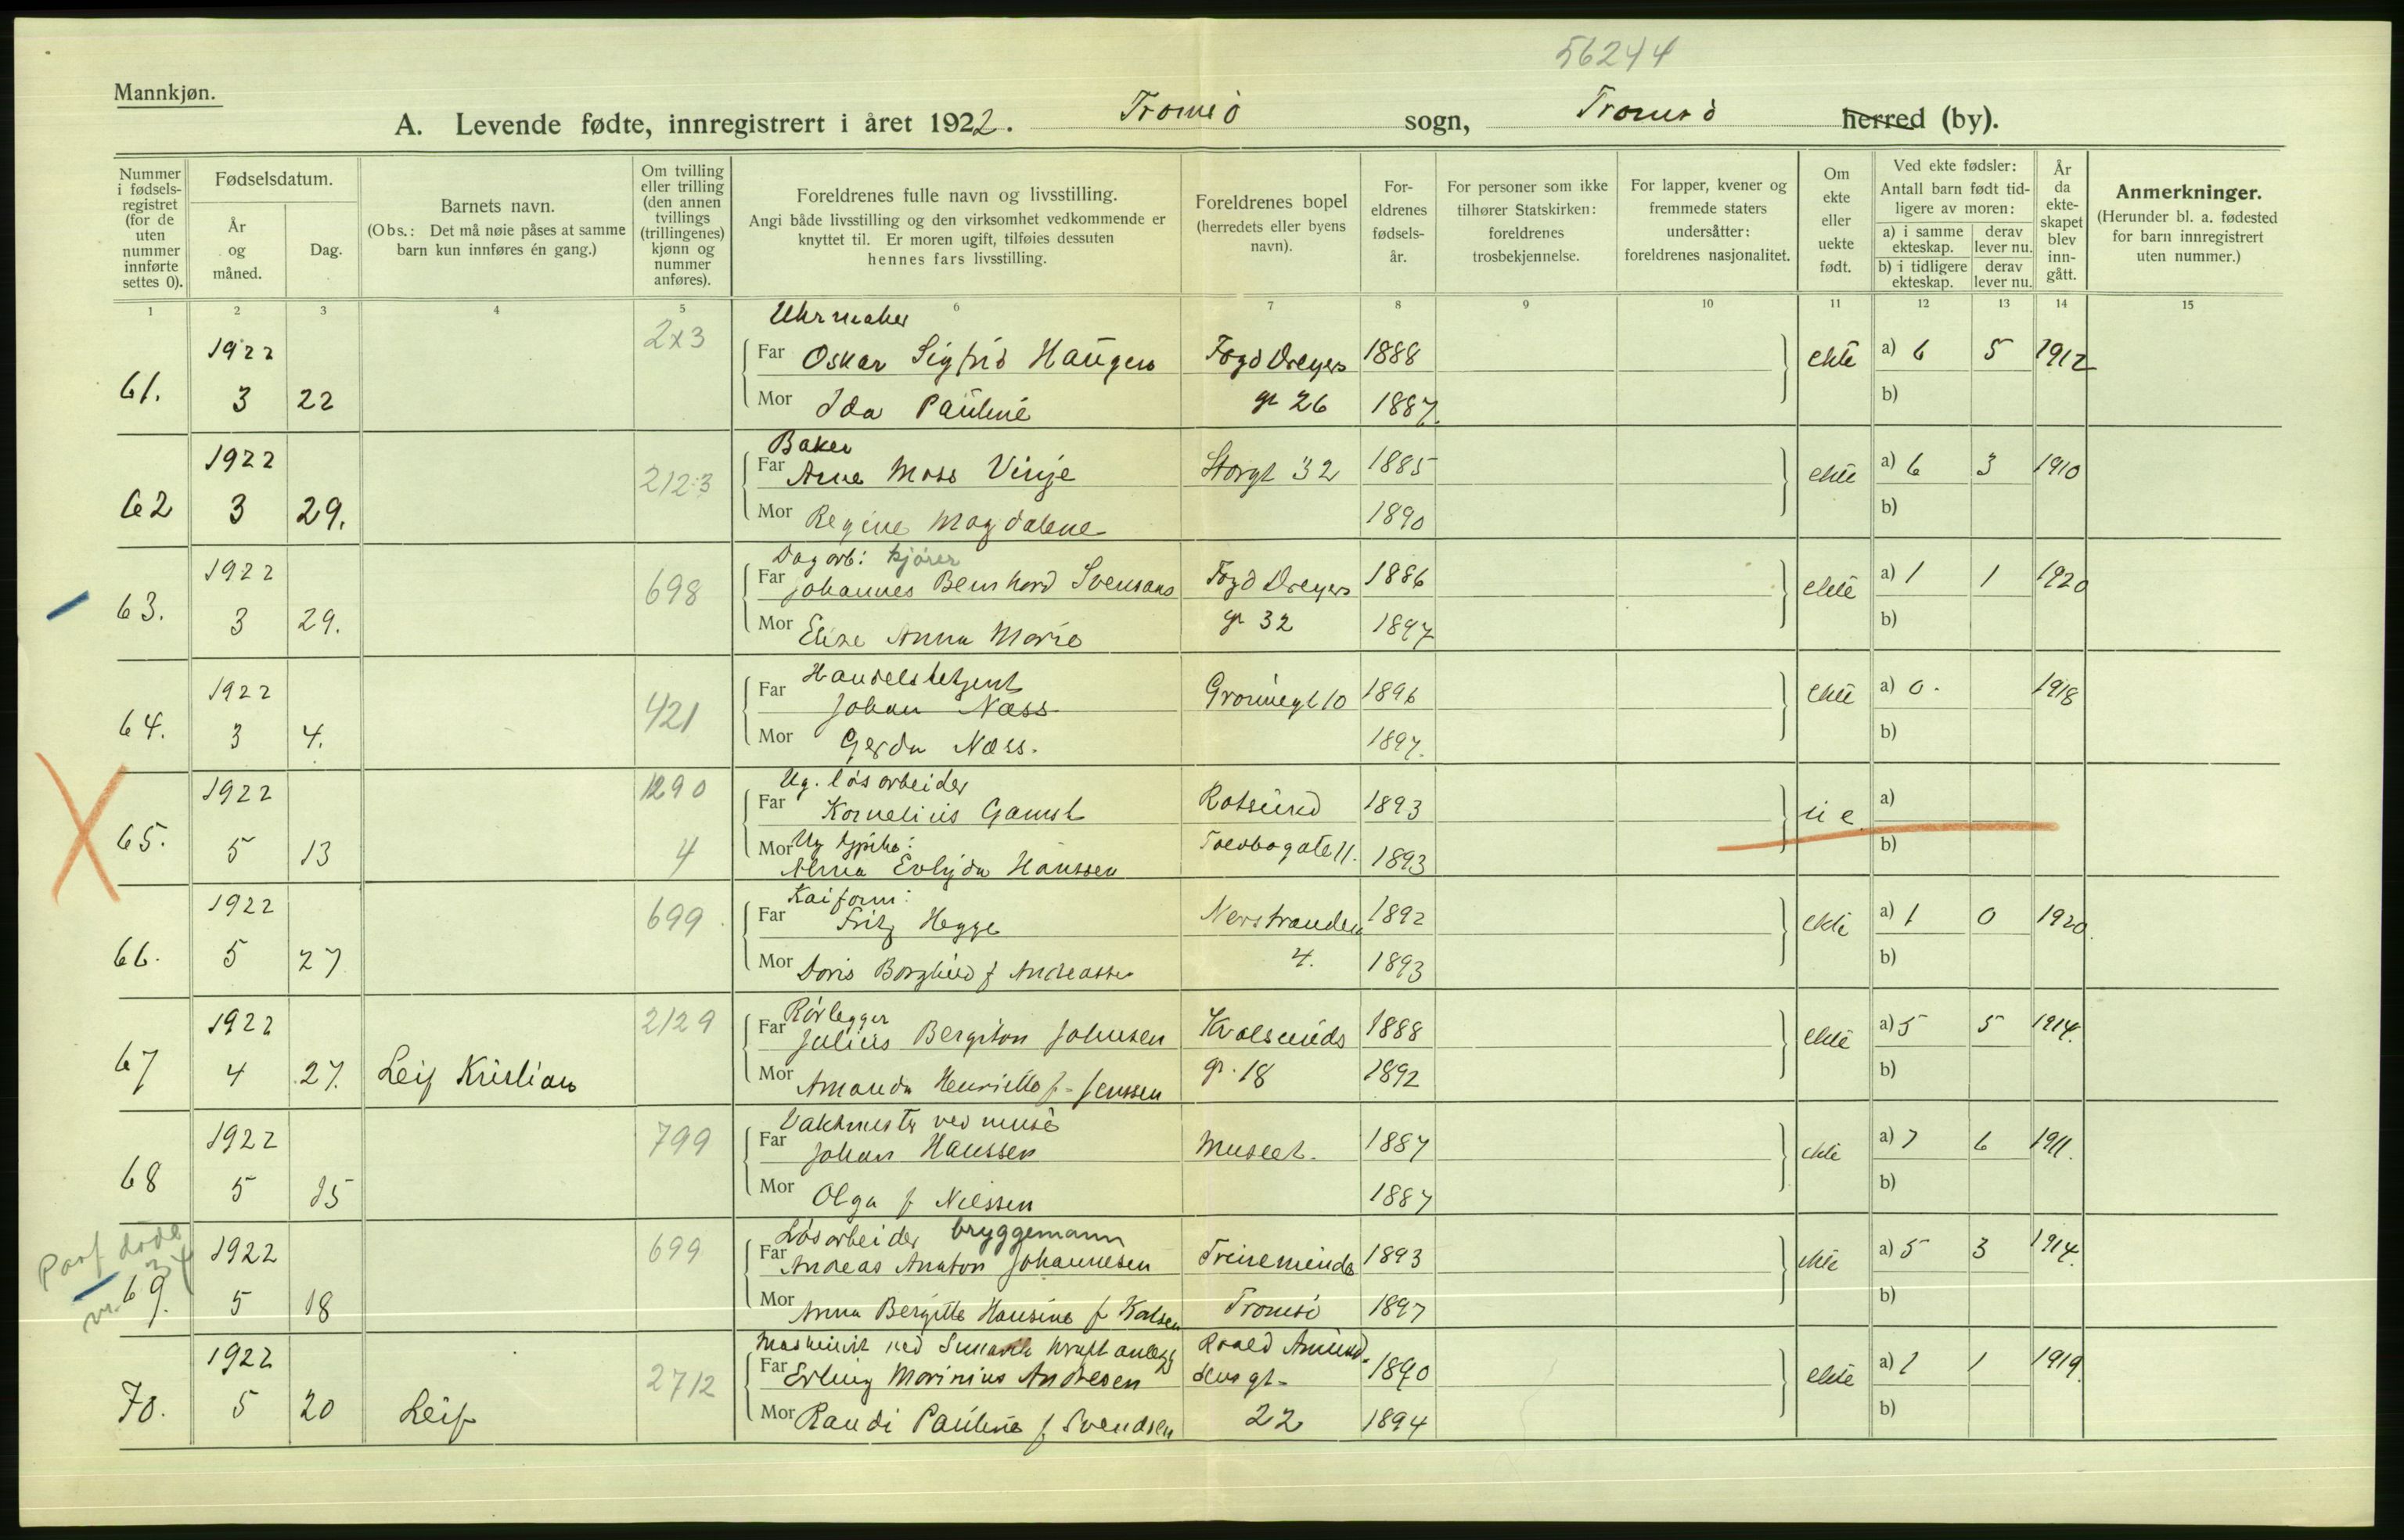 56244
Mannkjøn.
A. Levende fødte, innregistrert i året 1922. Tromsö sogn, Tromsö herred (by).
Nummer i fødsels-registret (for de uten nummer innførte settes 0).
Fødselsdatum.
År og måned.
Dag.
Barnets navn.
(Obs.: Det må nøie påses at samme barn kun innføres én gang.)
Om tvilling eller trilling (den annen tvillings (trillingenes) kjønn og nummer anføres).
Foreldrenes fulle navn og livsstilling.
Angi både livsstilling og den virksomhet vedkommende er knyttet til. Er moren ugift, tilføies dessuten hennes fars livsstilling.
Foreldrenes bopel (herredets eller byens navn).
For-eldrenes fødsels-år.
For personer som ikke tilhører Statskirken: foreldrenes trosbekjennelse.
For lapper, kvener og fremmede staters undersåtter: foreldrenes nasjonalitet.
Om ekte eller uekte født.
Ved ekte fødsler:
Antall barn født tid-ligere av moren:
a) i samme ekteskap.
derav lever nu.
b) i tidligere ekteskap.
derav lever nu.
År da ekte-skapet blev inn-gått.
Anmerkninger.
(Herunder bl. a. fødested for barn innregistrert uten nummer.)
1 2 3 4 5 6 7 8 9 10 11 12 13 14 15
Uhrmaker
1922 2x3 Far Oskar Sigfrid Haugen Fogd Dreyers 1888 ekte a) 6 5 1912
61. 3 22 Mor Ida Pauline gt 26 1887. b)
Baker
1922 212:3 Far Arne Moss Vinje Storgt 32 1885 ekte a) 6 3 1910
62 3 29. Mor Regine Magdalene 1890 b)
Dagarb: kjører
1922 698 Far Johannes Bernhard Svensans Fogd Dreyers 1886 ekte a) 1 1 1920
63. 3 29. Mor Elise Anna Marie gt 32 1897 b)
Handelsbetjent
1922 421 Far Johan Næss Grønnegt 10 1896 ekte a) 0. 1918
64. 3 4. Mor Gerda Næss. 1897. b)
Ug. løsarbeider
1922 1290 Far Kornelius Gamst Rotsund 1893 u e. a)
65. 5 13 4 Mor Ug Alma Evlyda Hanssen Toldbogate 11. 1893 b)
Kaiform:
1922 699 Far Fritz Hegge Nerstranden 1892 ekte a) 1 0 1920.
66. 5 27 Mor Doris Borghild f Andreassen 4. 1893 b)
Rörlegger
1922 2129 Far Julius Bergiton Johnsen Kvalsunds 1888 ekte a) 5 5 1914.
67 4 27. Leif Kristian Mor Amanda Henriette f- Jenssen gt. 18 1892 b)
Vaktmester ved musé
1922 799 Far Johan Hanssen Museet. 1887 ekte a) 7 6 1911.
68 5 15 Mor Olga f Nilssen 1887 b)
Løsarbeider bryggemann
1922 699 Far Andreas Anaton Johannesen Trineminde 1893 ekte a) 5 3 1914.
69. 5 18 Mor Anna Bergitte Hansine f Karlsen Tromsö 1897 b)
Maskinist ved kraftanlegg Roald Amund-
1922 2712 Far Erling Marinius Andresen sens gt- 1890 ekte a) 1 1 1919.
70. 5 20 Leif Mor Randi Pauline f Svendsen 22 1894 b)